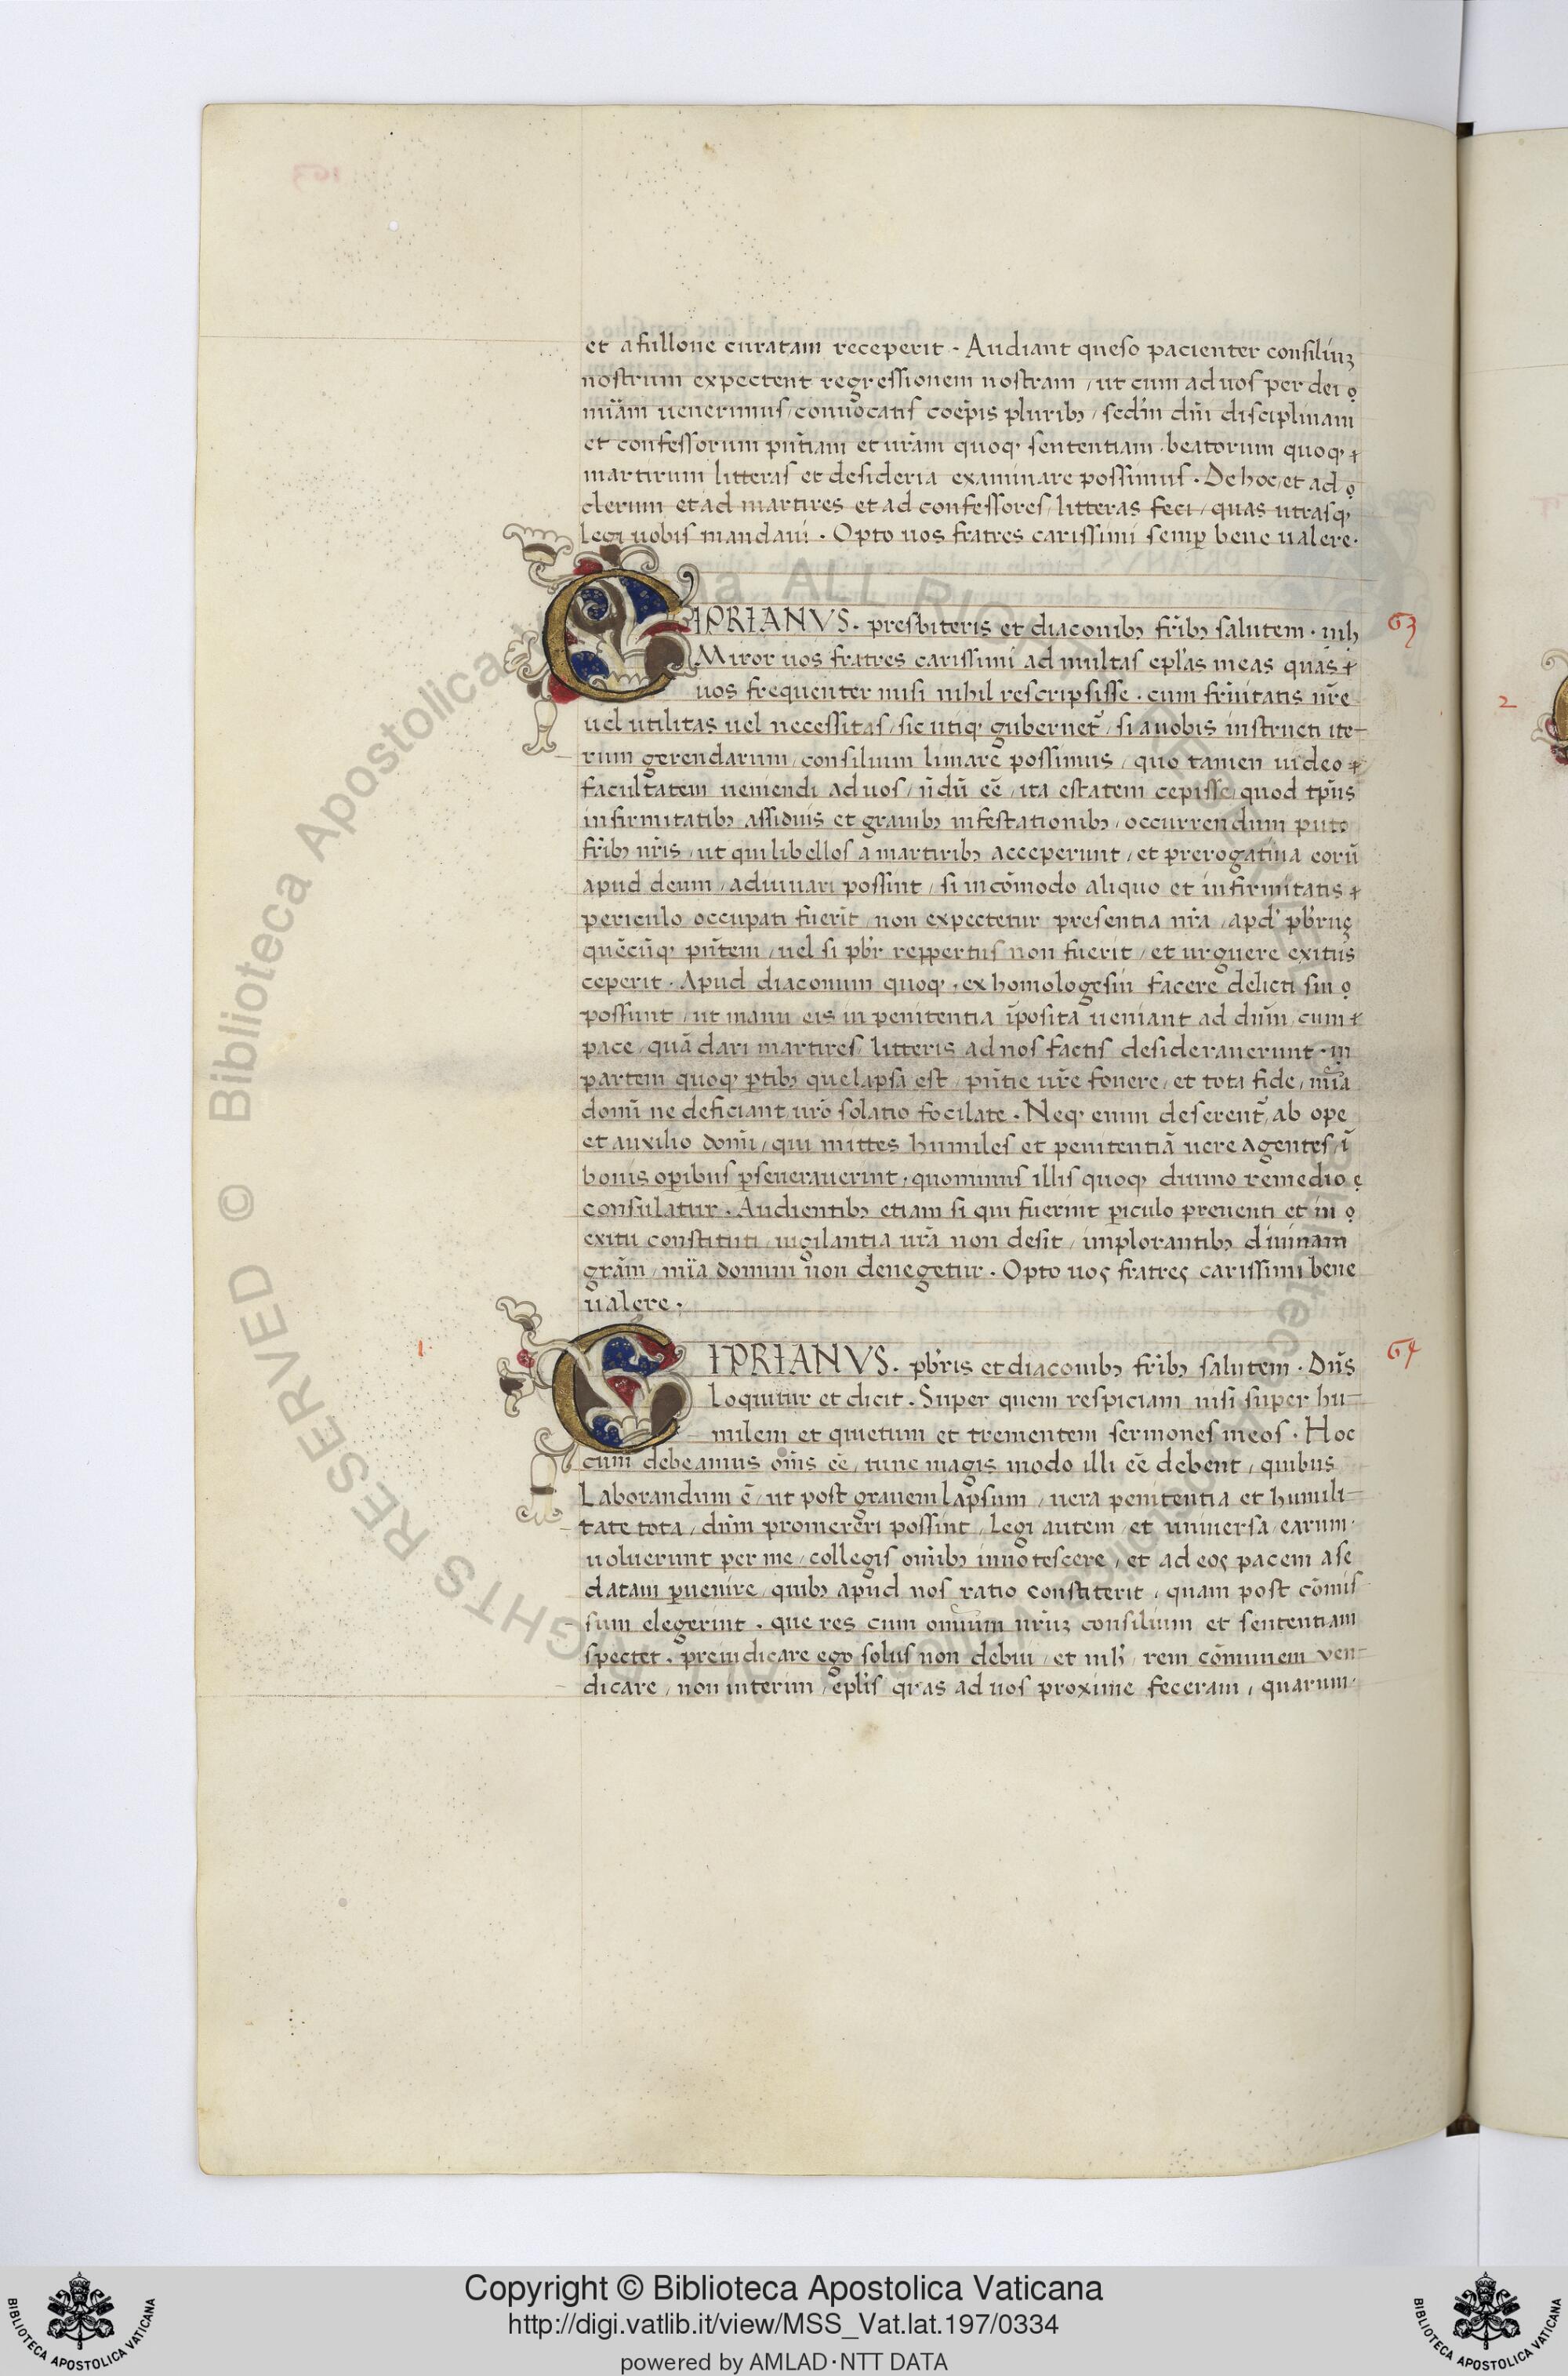 et a fullone curatam receperit - Audiant queso pacienter consiliuꝫ
nostrum expectent regressionem nostram / ut cum ad uos per dei
mīam uenerimus / conuocatis coep̄is pluribꝫ / sedm̄ dn̄i disciplinam
et confessorum pn̄tiam et ur̄am quoqꝫ sententiam · beatorum quoqꝫ
martirum litteras et desideria examinare possimus · De hoc et ad
clerum et ad martires et ad confessores / litteras feci / quas utrasqꝫ
legi uobis mandaui · Opto uos fratres carissimi semꝑ bene ualere ·
CIPRIANVS · presbiteris et diaconibꝫ fr̄ibꝫ salutem ·
Miror uos fratres carissimi ad multas ep̄las meas quas
uos frequenter misi nihil rescripsisse · cum fr̄nitatis nr̄e
uel utilitas uel necessitas / sic utiqꝫ gubernet᷑ / si a uobis instructi ite-
rum gerendarum / consilium limare possimus / quo tamen uideo
facultatem ueniendi ad uos / n̄dū eē / ita estatem cepisse / quod tp̄us
infirmitatibꝫ assiduis et grauibꝫ infestationibꝫ / occurrendum puto
fr̄ibꝫ nr̄is / ut qui libellos a martiribꝫ acceperunt / et prerogatiua eorū
apud deum / adiuuari possint / si incōmodo aliquo et infirmitatis
periculo occupati fuerīt / non expectetur presentia nr̄a / apd' pb̄rum
quēcūqꝫ pn̄tem / uel si pb̄r reppertus non fuerit / et urguere exitus
ceperit · Apud diaconum quoqꝫ · exhomologesin facere delicti sui
possunt / ut manu eis in penitentia īposita ueniant ad dn̄m cum
pace / quā dari martires / litteris ad nos factis desiderauerunt · in
partem quoqꝫ ꝑtibꝫ que lapsa est / pn̄tie ur̄e fouere / et tota fide / mīa
domī ne deficiant ur̄o solatio focilate · Neqꝫ enim deserent᷑ ab ope
et auxilio domī / qui mittes humiles et penitentiā uere agentes / ī
bonis operibus ꝑseuerauerint · quominus illis quoqꝫ diuino remedio
consulatur · Audientibꝫ etiam si qui fuerint ꝑiculo preuenti et in
exitu constituti / uigilantia ur̄a non desit / implorantibꝫ diuinam
gr̄am / mīa domini non denegetur · Opto uos fratres carissimi bene
ualere ·
CIPRIANVS · pb̄ris et diaconibꝫ fr̄ibꝫ salutem · Dn̄s
loquitur et dicit · Super quem respiciam nisi super hu-
milem et quietum et trementem sermones meos · Hoc
cum debeamus om̄s eē / tunc magis modo illi eē debent / quibus
Laborandum ē / ut post grauem lapsum / uera penitentia et humili-
tate tota / dn̄m promereri possint / Legi autem et uniuersa / earum
uoluerunt per me / collegis om̄ibꝫ innotescere / et ad eos pacem a se
datam ꝑuenire / quibꝫ apud nos ratio constiterit · quam post cōmis
sum elegerint · que res cum omnium nr̄uꝫ consilium et sententiam
spectet · preiudicare ego solus non debui / et mh' rem cōmunem ven-
dicare / non interim / ep̄lis quas ad uos proxime feceram / quarum
63
64
1
2
Copyright © Biblioteca Apostolica Vaticana
http://digi.vatlib.it/view/MSS_Vat.lat.197/0334
powered by AMLAD·NTT DATA
BIBLIOTECA APOSTOLICA VATICANA
BIBLIOTECA APOSTOLICA VATICANA